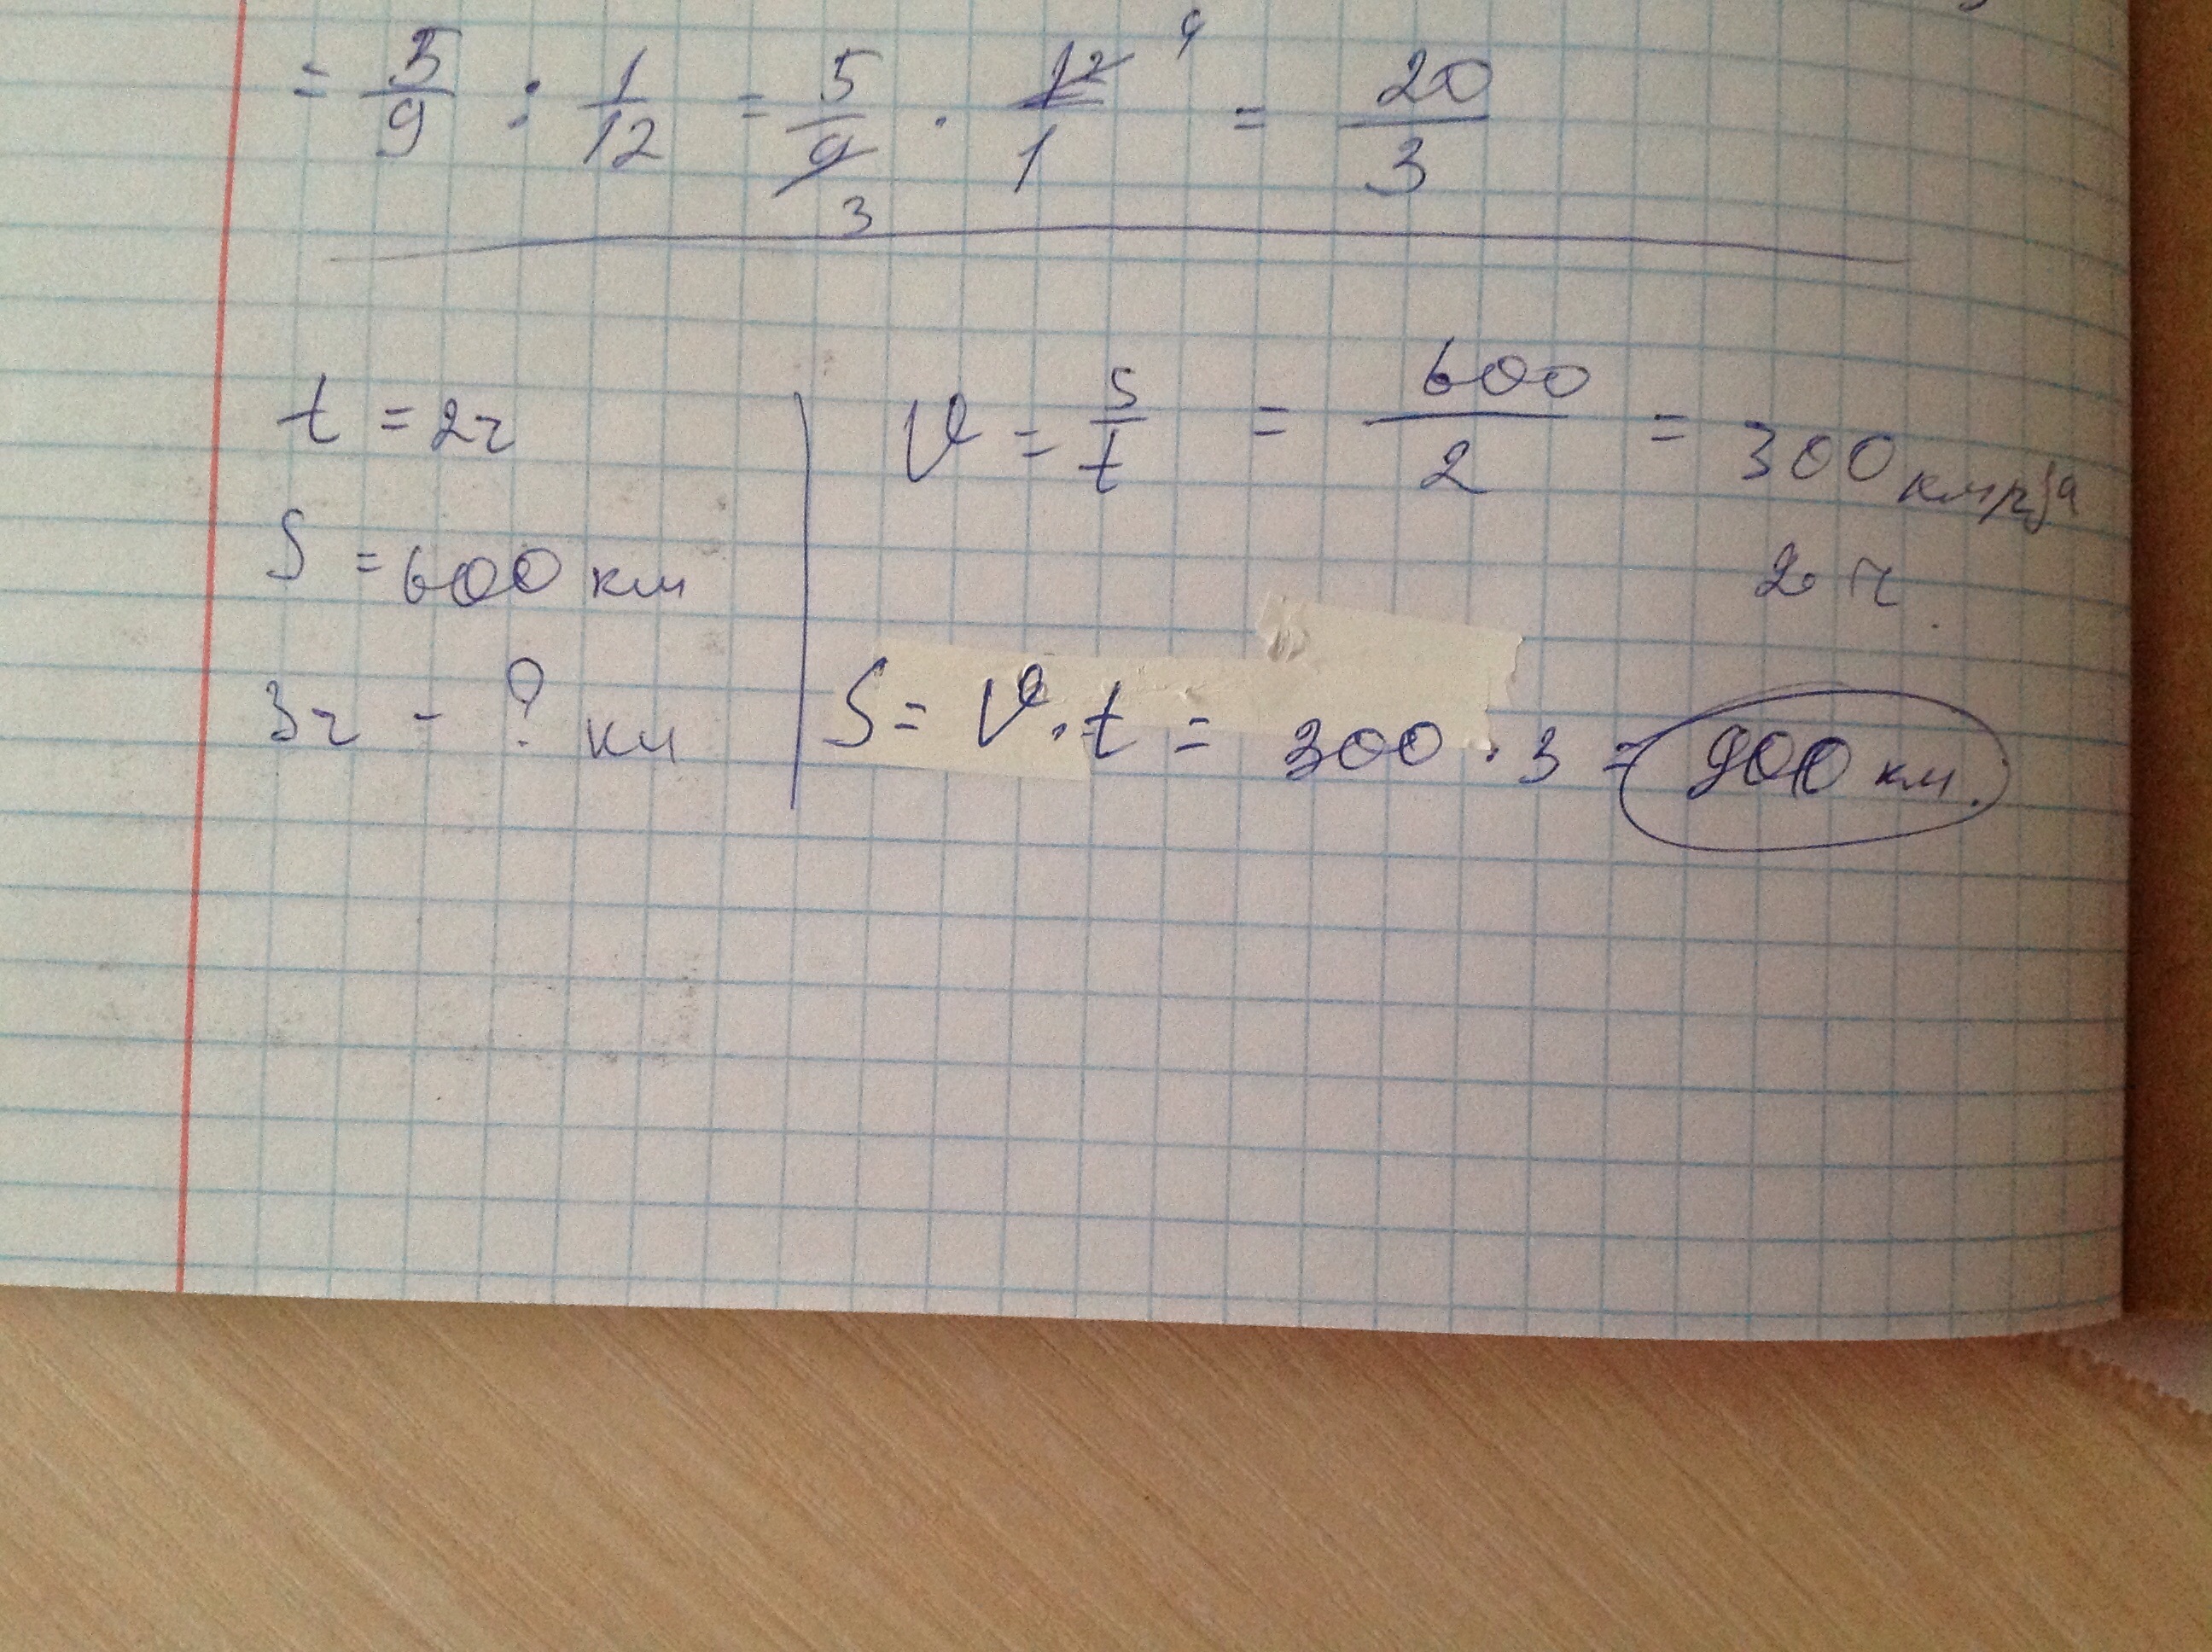 = 5/9 : 1/12 = 5/9 3 · 12/1 4 = 20/3
t = 2ч
S = 600 км
3ч - ? км
v = S/t = 600/2 = 300 км/ч за
2 ч.
S = v · t = 300 · 3 = 900 км.